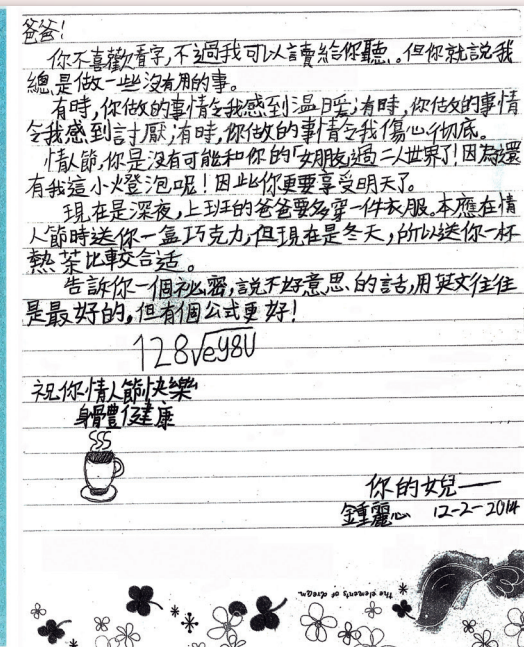 爸爸!
你不喜歡看字,不過我可以讀給你聽。但你就說我
總是做一些沒有用的事。
有時,你做的事情令我感到溫暖;有時,你做的事情
令我感到討厭;有時,你做的事情令我傷心彻底。
情人節,你是沒有可能和你的「女朋友」過二人世界了!因為還
有我這小燈泡呢!因此你更要享受明天了。
現在是深夜,上班的爸爸要多穿一件衣服。本應在情
人節時送你一盒巧克力,但現在是冬天,所以送你一杯
熱茶比較合适。
告訴你一個祕密,說不好意思的話,用英文往往
是最好的,但有個公式更好!
128√ey8U
祝你情人節快樂
身體健康
你的女兒——
鍾麗心 12-2-2014
the elements of dream